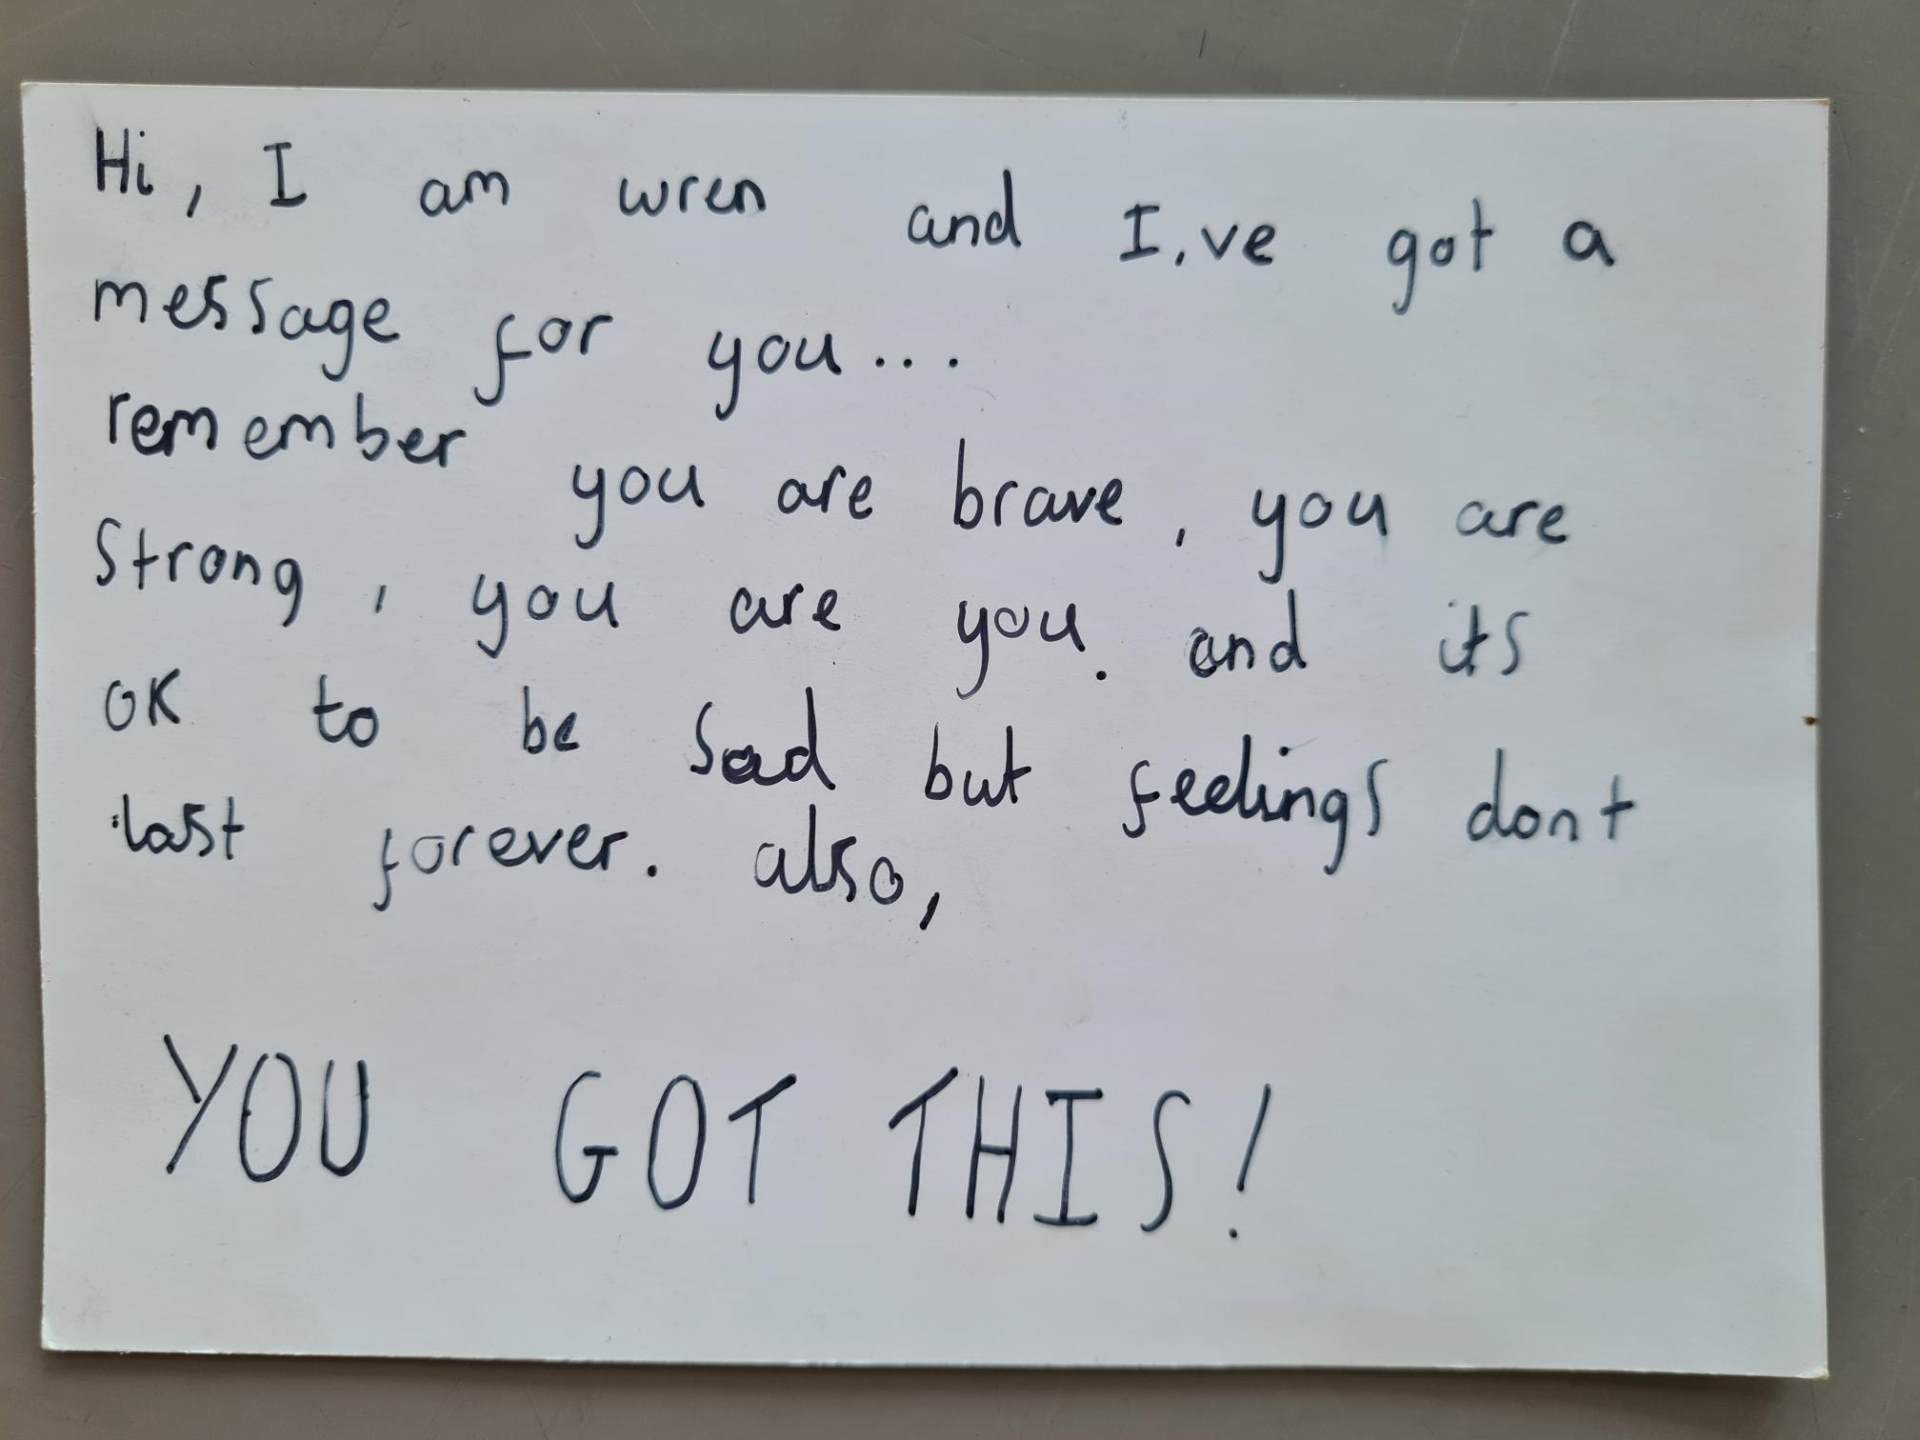 Hi, I am wren and I,ve got a
message for you...
remember you are brave, you are
strong, you are you. and its
ok to be sad but feelings dont
last forever. also,
YOU GOT THIS!